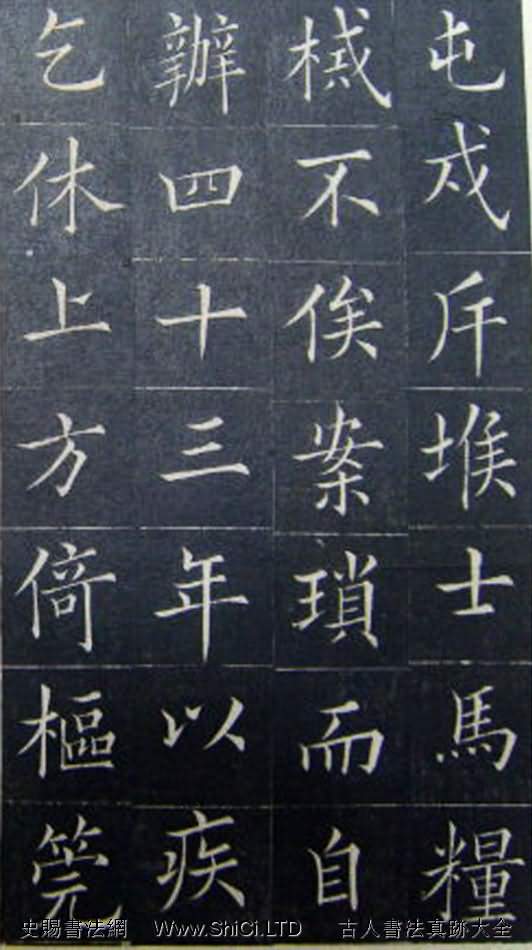 屯戍斥堠士馬糧
械不俟案瑣而自
辦四十三年以疾
乞休上方倚樞筦
史賜書法網 Www.ShiCi.LTD 古人書法真跡大全